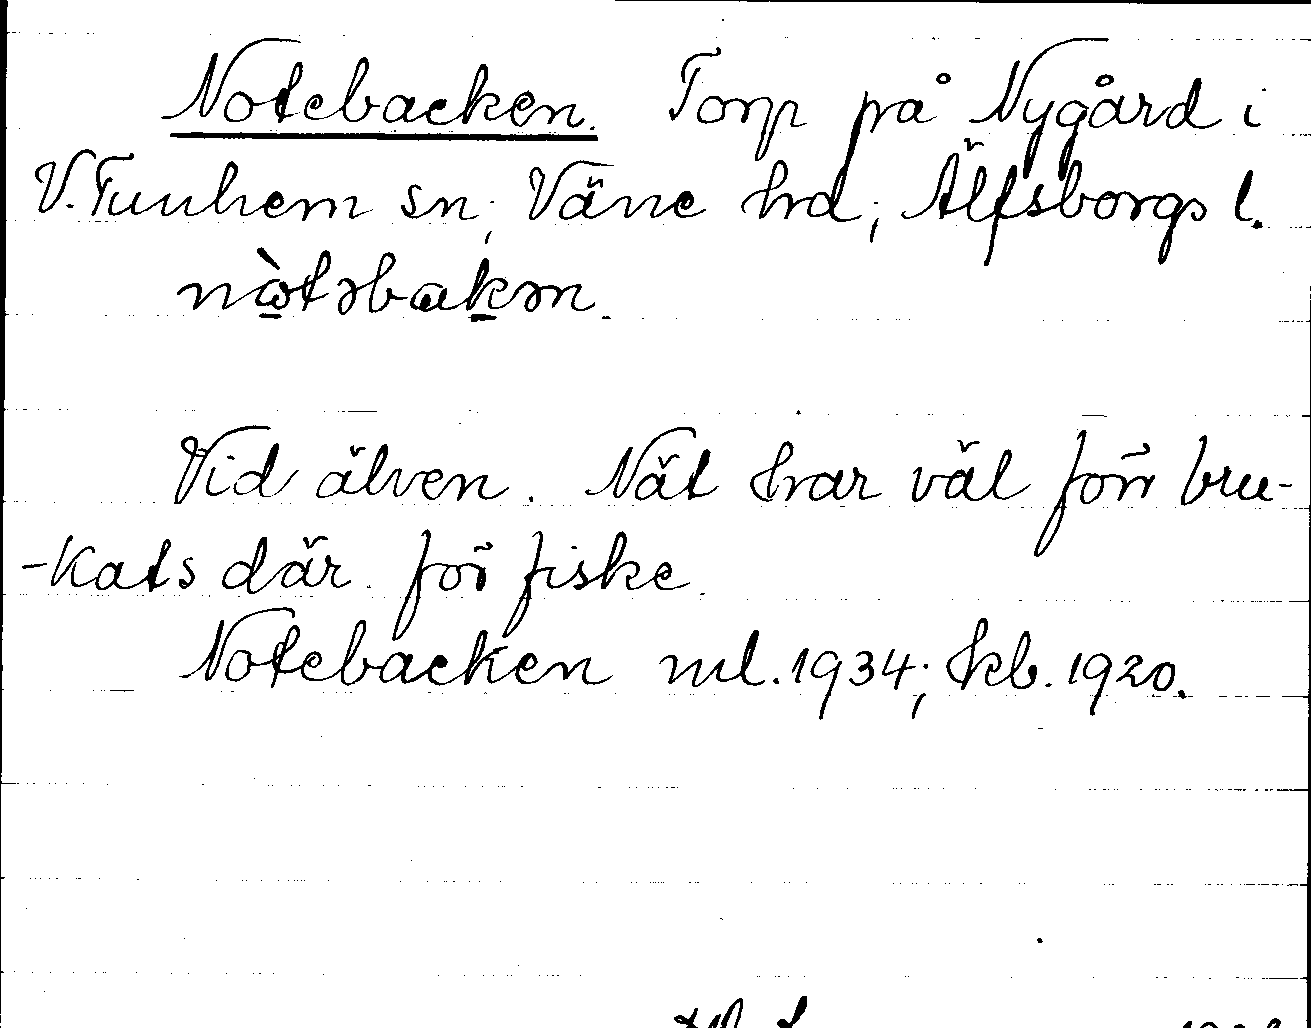 Notebacken. Torp på Nygård i
V. Tunhem sn; Väne hd; Älfsborgs l.
nὼtəbakən.
Vid älven. Nät har väl förr bru-
-kats där för fiske.
Notebacken ml. 1934; kb. 1920.